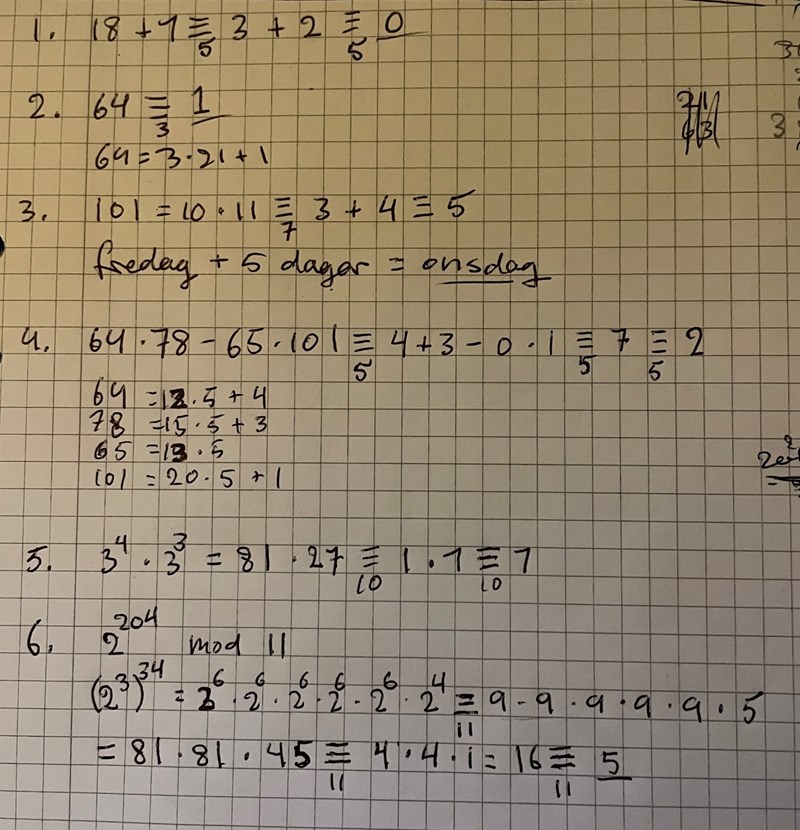 1. 18 + 7 ≡₅ 3 + 2 ≡₅ 0
2. 64 ≡₃ 1
64 = 3·21 + 1
3. 101 = 10·11 ≡₇ 3 + 4 ≡ 5
fredag + 5 dagar = onsdag
4. 64·78 - 65·101 ≡₅ 4+3 - 0·1 ≡₅ 7 ≡₅ 2
64 = 12·5 + 4
78 = 15·5 + 3
65 = 13·5
101 = 20·5 + 1
5. 3⁴·3³ = 81·27 ≡₁₀ 1·7 ≡₁₀ 7
6. 2²⁰⁴ mod 11
(2³)³⁴ = 2⁶·2⁶·2⁶·2⁶·2⁶·2⁴ ≡₁₁ 9·9·9·9·9·5
= 81·81·45 ≡₁₁ 4·4·1 = 16 ≡₁₁ 5